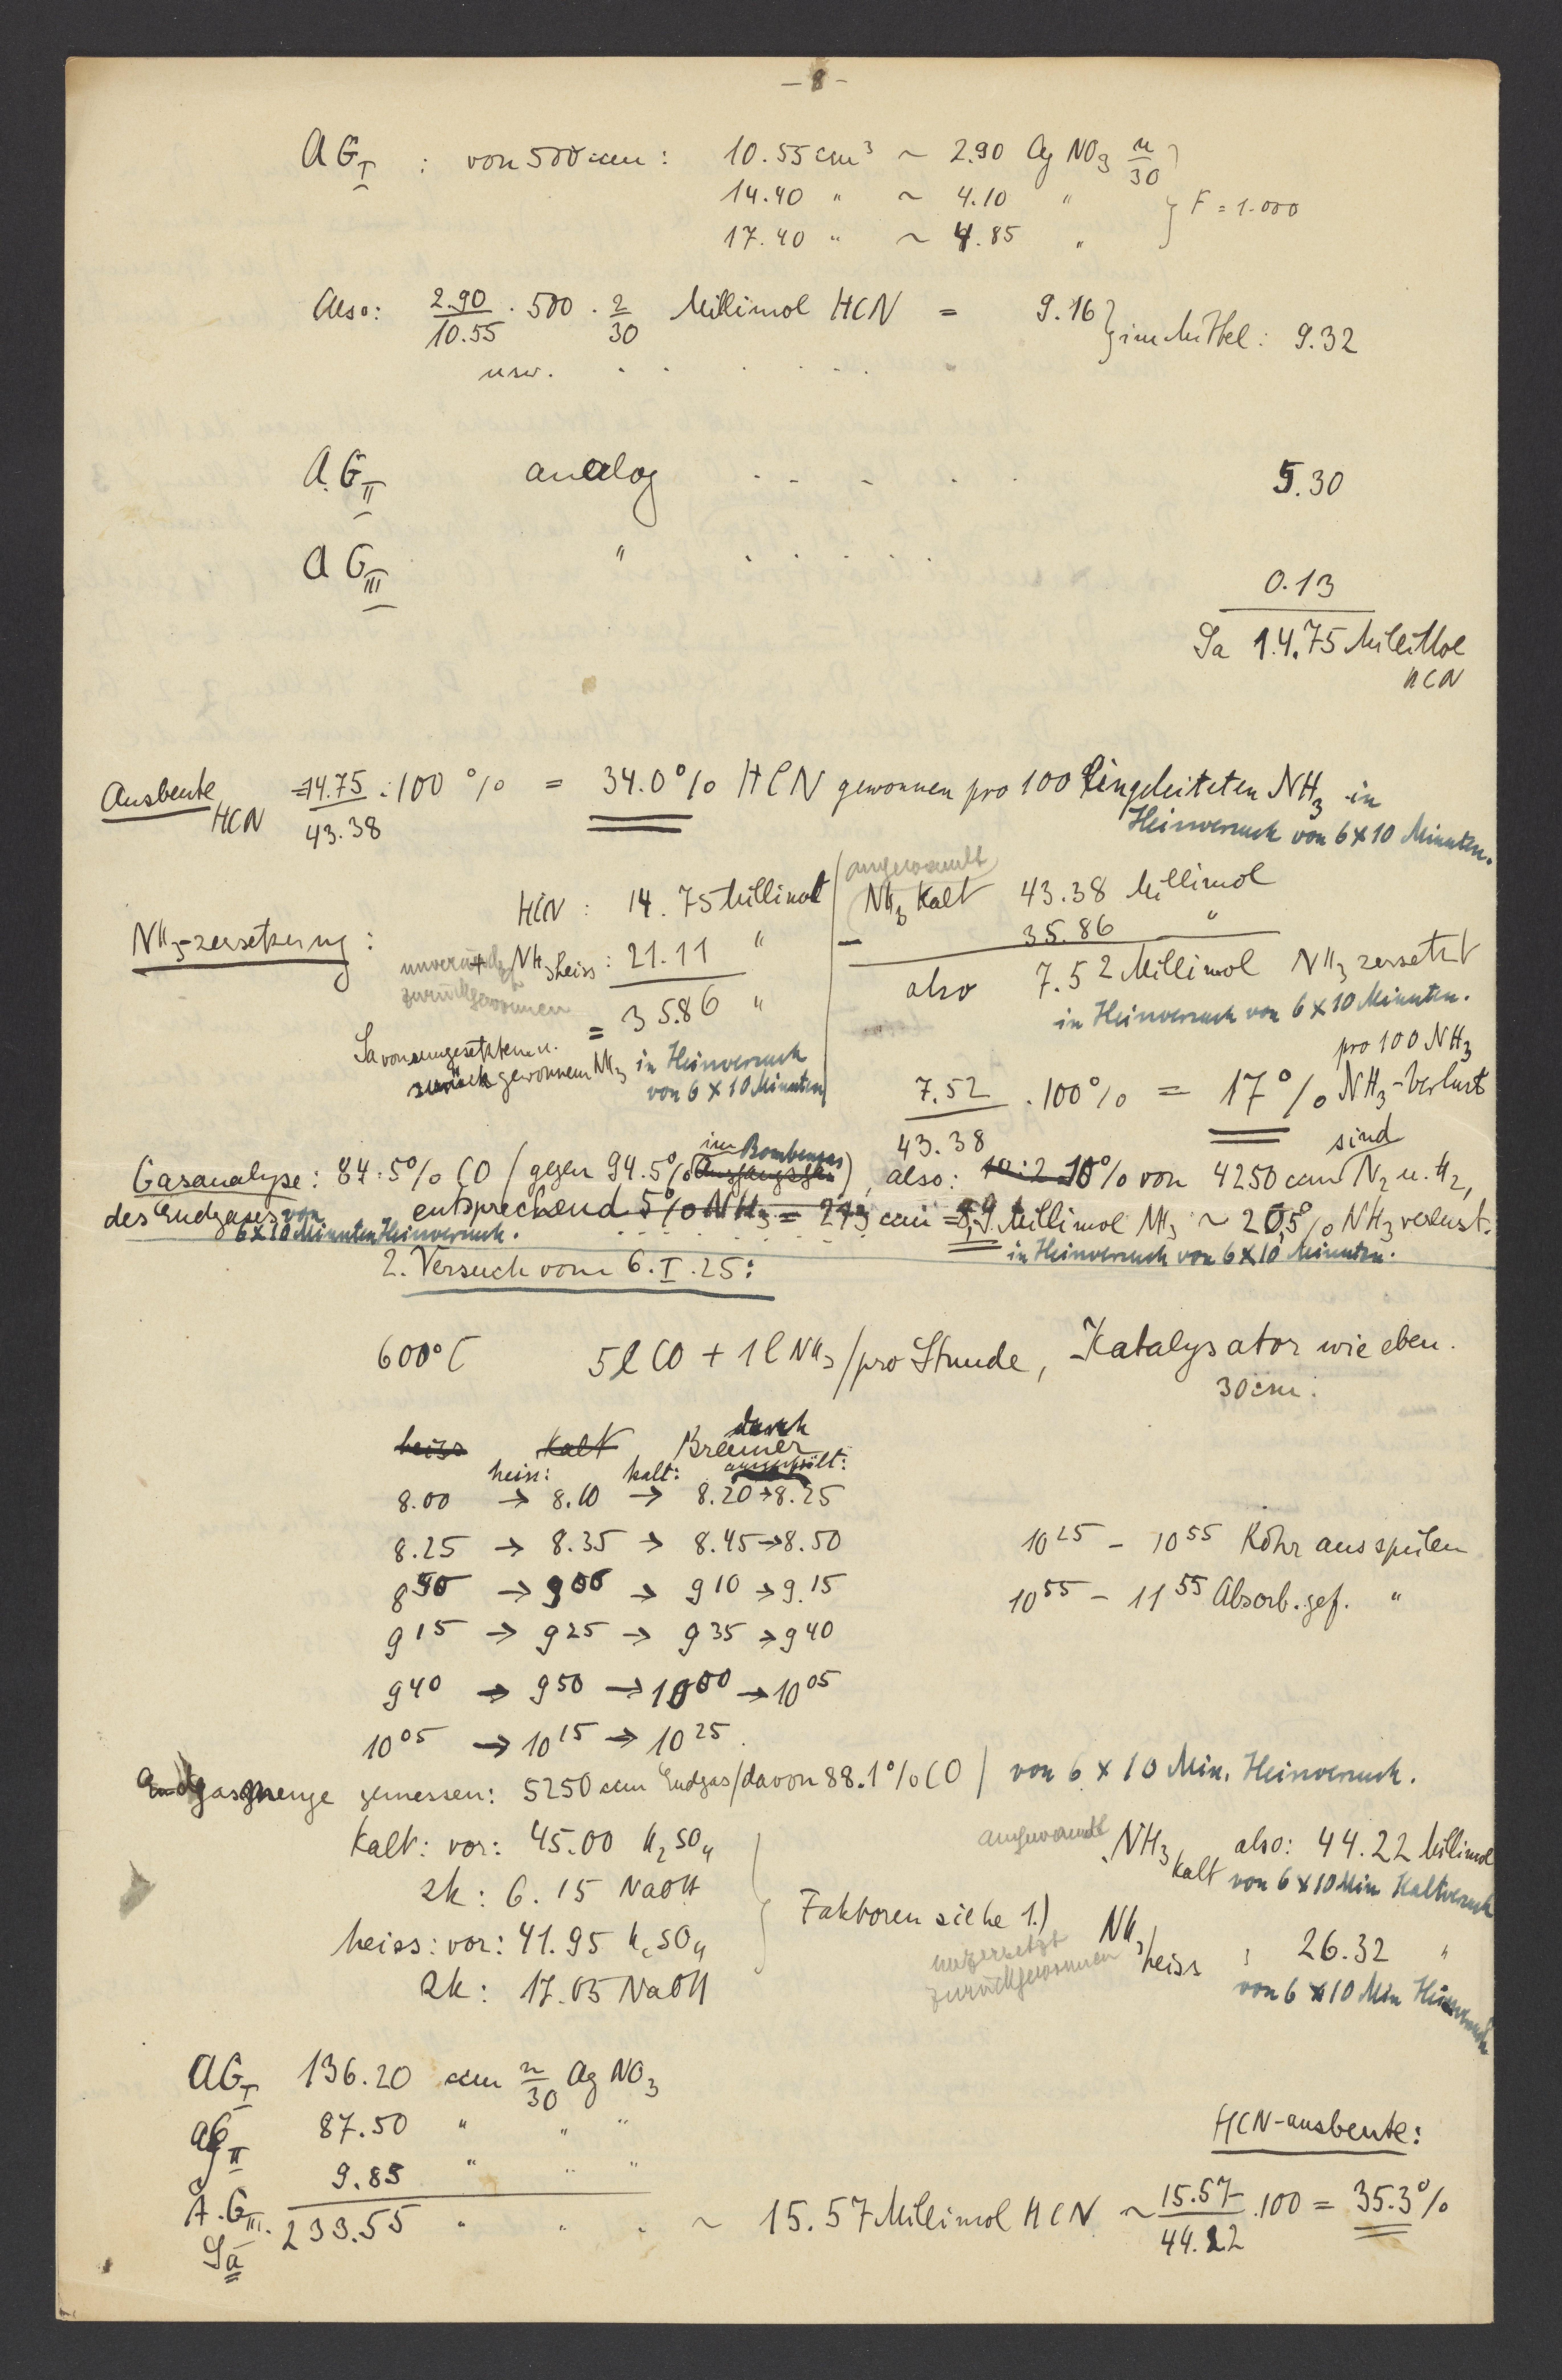 — 8 —
AG I : von 500 ccm : 10.55 cm³ ~ 2.90 AgNO3 n/30
14.40 " ~ 4.10 "
17.40 " ~ 4.85 " } F = 1.000
Also: 2.90/10.55 · 500 · 2/30 Millimol HCN = 9.16 } im Mittel: 9.32
usw. . . . . . .
A.G II analog . - - . . 5.30
AG III " . . . . . 0.13
Sa 14.75 MilliMol
HCN
Ausbeute HCN = 14.75/43.38 · 100 % = 34.0 % HCN gewonnen pro 100 eingeleiteten NH3 in
Heissversuch von 6×10 Minuten.
NH3-zersetzung : HCN : 14.75 Millimol
+ NH3 heiss : 21.11 "
unverändert zurückgewonnen
= 35.86 "
Sa von umgesetztem u.
zurückgewonnem NH3 in Heissversuch
von 6 × 10 Minuten
angewandt
NH3 kalt 43.38 Millimol
— 35.86 "
also 7.52 Millimol NH3 zersetzt
in Heissversuch von 6 × 10 Minuten.
7.52/43.38 · 100 % = 17 % NH3-Verlust
pro 100 NH3
Gasanalyse : 84.5 % CO (gegen 94.5 % Ausgangsgas im Bombengas), also: 10 % von 4250 ccm sind N2 u. H2,
des Endgases von entsprechend 5 % NH3 = 213 ccm = 8,9 Millimol NH3 ~ 20,5 % NH3 verlust.
6×10 Minuten Heissversuch. in Heissversuch von 6×10 Minuten.
2. Versuch vom 6.I.25:
600° C 5 l CO + 1 l NH3 / pro Stunde, Katalysator wie eben.
30 cm.
heiss kalt Bremer durch
heiss: kalt:
8.00 → 8.10 → 8.20 → 8.25
8.25 → 8.35 → 8.45 → 8.50
8 50 → 9 00 → 9 10 → 9.15
9 15 → 9 25 → 9 35 → 9 40
9 40 → 9 50 → 10 00 → 10 05
10 05 → 10 15 → 10 25.
10 25 – 10 55 Rohr ausspülen
10 55 – 11 55 Absorb.gef. "
Endgasmenge gemessen: 5250 ccm Endgas / davon 88.1 % CO / von 6 × 10 Min. Heissversuch.
kalt: vor: 45.00 H2SO4
zk: 6.15 NaOH
heiss: vor: 41.95 H2SO4
zk: 17.05 NaOH
Faktoren siehe 1.)
angewandt NH3 kalt also: 44.22 Millimol
von 6 × 10 Min Kaltversuch
unzersetzt zurückgewonnen NH3 heiss : 26.32 "
von 6 × 10 Min Heissversuch
AG I 136.20 ccm n/30 AgNO3
AG II 87.50 " " "
A.G III. 9.85 " " "
Sa 233.55 " " " ~ 15.57 Millimol HCN ~ 15.57/44.22 · 100 = 35.3 %
HCN-ausbeute: